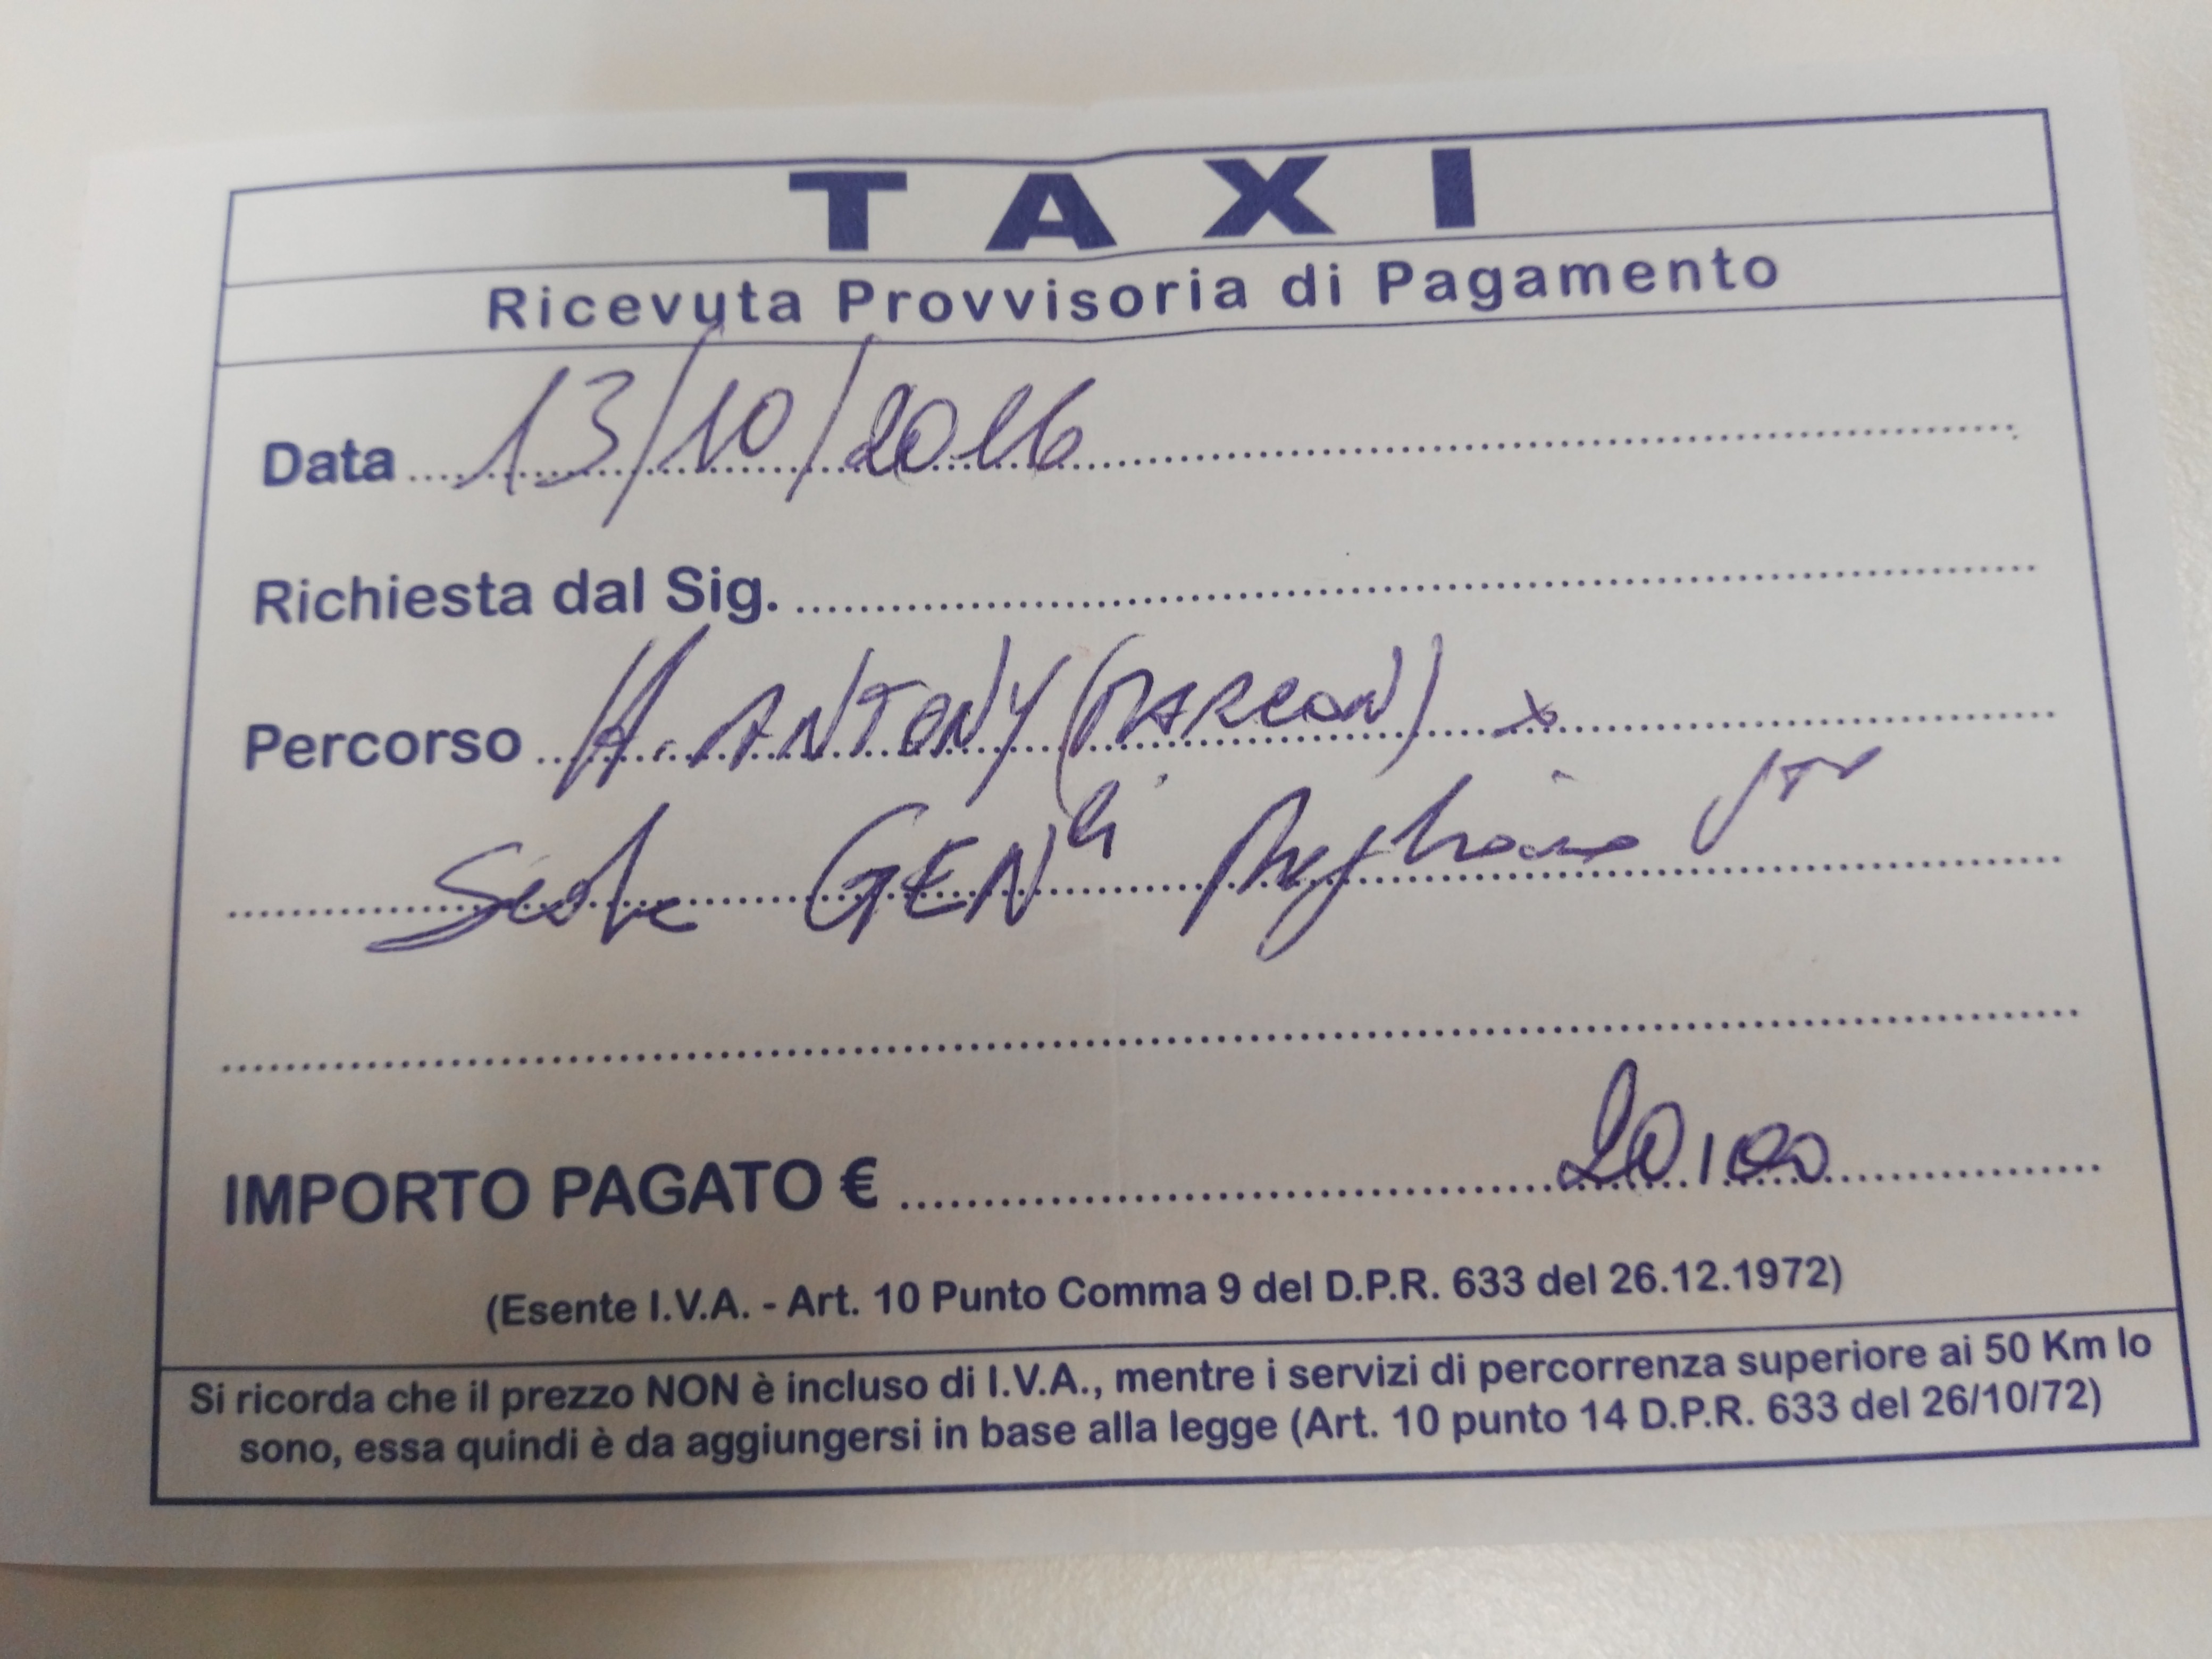 TAXI
Ricevuta Provvisoria di Pagamento
Data 13/10/2016
Richiesta dal Sig.
Percorso H. ANTONY (MARCON) x
Sede GEN li Mogliano
IMPORTO PAGATO € 20,00
(Esente I.V.A. - Art. 10 Punto Comma 9 del D.P.R. 633 del 26.12.1972)
Si ricorda che il prezzo NON è incluso di I.V.A., mentre i servizi di percorrenza superiore ai 50 Km lo
sono, essa quindi è da aggiungersi in base alla legge (Art. 10 punto 14 D.P.R. 633 del 26/10/72)